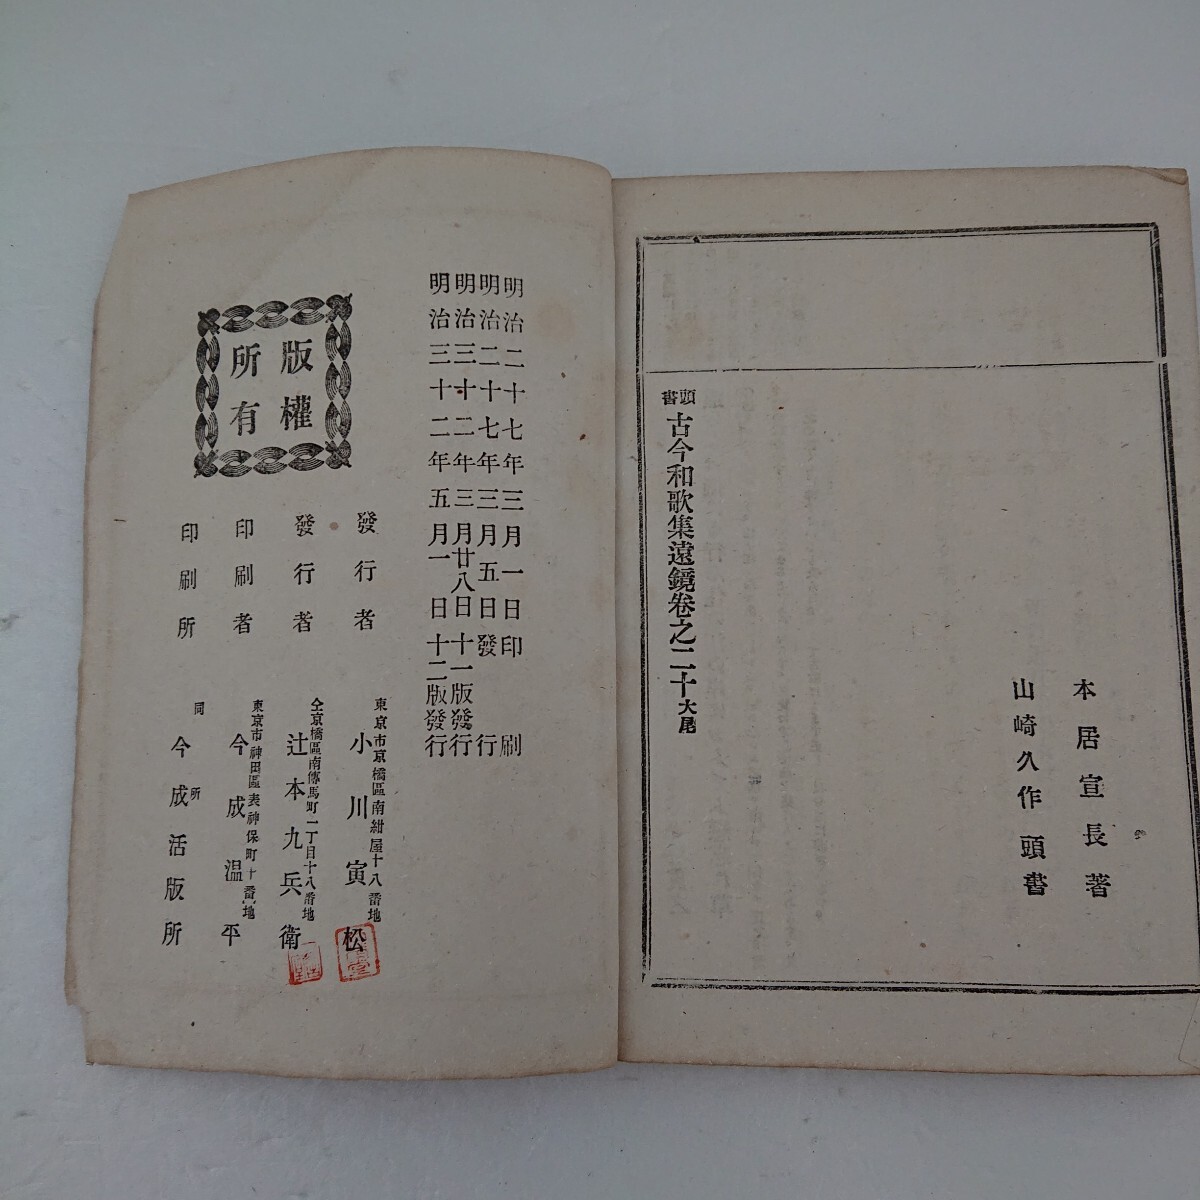 本居宣長著
山崎久作頭書
頭書
古今和歌集遠鏡卷之二十大尾
明治二十七年三月一日印刷
明治二十七年三月五日發行
明治三十二年三月廿八日十一版發行
明治三十二年五月一日十二版發行
版權
所有
東京市京橋區南紺屋十八番地
發行者 小川寅松
仝京橋區南傳馬町一丁目十八番地
發行者 辻本九兵衛
東京市神田區表神保町十番地
印刷者 今成温平
同所
印刷所 今成活版所